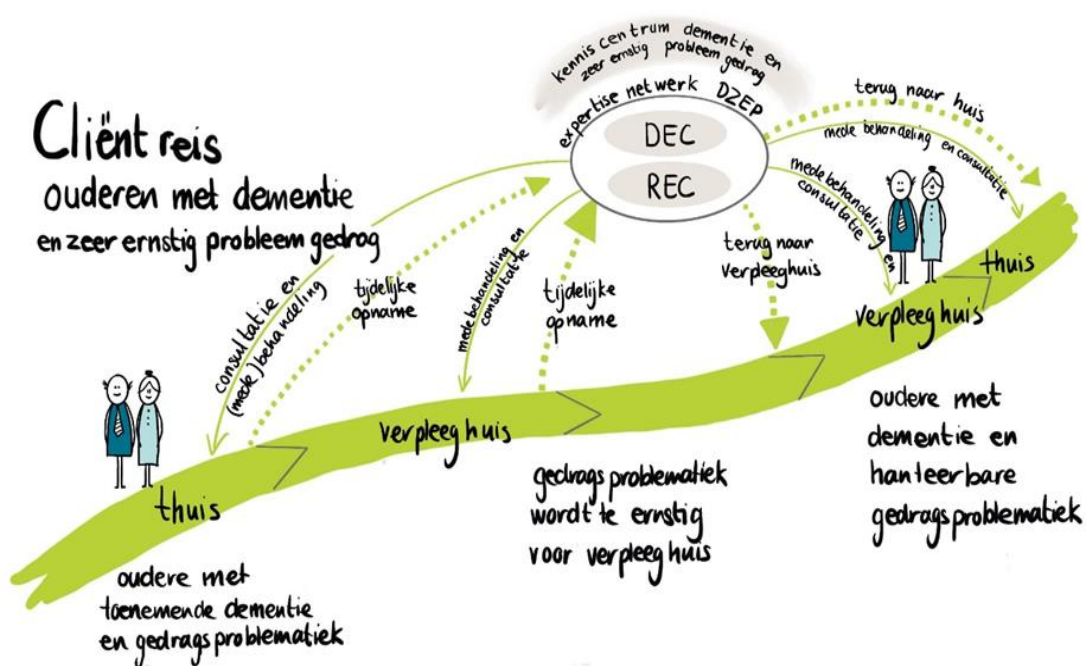 Cliënt reis
ouderen met dementie
en zeer ernstig probleem gedrag
kennis centrum dementie en
zeer ernstig probleem gedrag
expertise netwerk DZEP
DEC
REC
consultatie en
(mede)behandeling
tijdelijke
opname
mede behandeling en
consultatie
tijdelijke
opname
terug naar
verpleeghuis
mede behandeling en
consultatie
mede behandeling en consultatie
terug naar huis
thuis
verpleeghuis
verpleeghuis
thuis
oudere met
toenemende dementie
en gedragsproblematiek
gedragsproblematiek
wordt te ernstig
voor verpleeghuis
oudere met
dementie en
hanteerbare
gedragsproblematiek